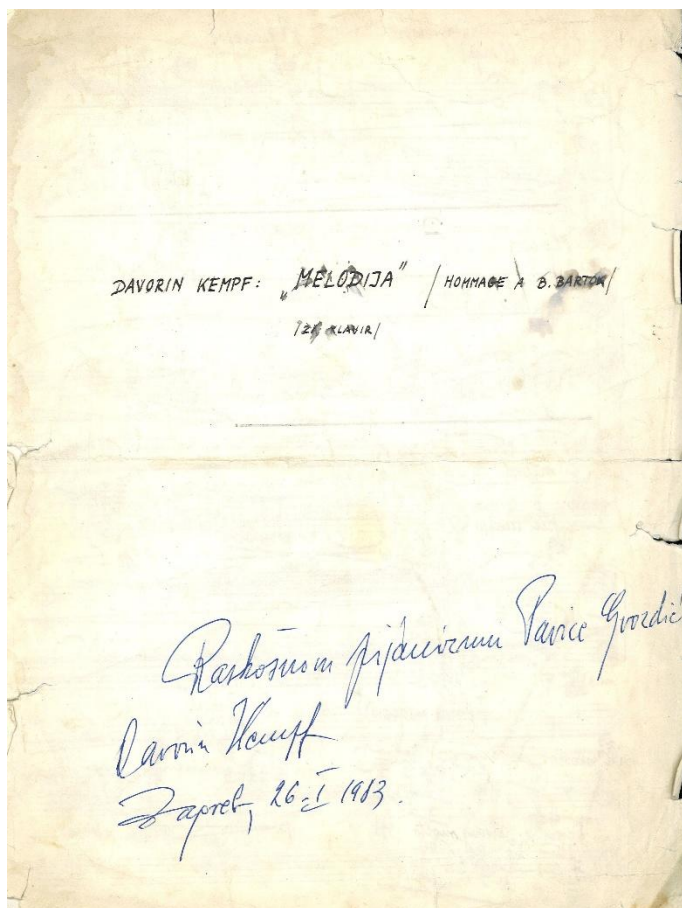 DAVORIN KEMPF: „MELODIJA" /HOMMAGE A B. BARTOK/
/ZA KLAVIR/
Raskošnom pijanizmu Pavice Gvozdić
Davorin Kempf
Zagreb, 26.I 1983.